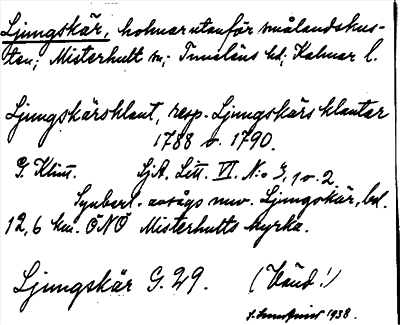 Ljungskär, holmar utanför smålandskus-
ten; Misterhult sn; Tunaläns hd; Kalmar l.
Ljungskärsklant, resp. Ljungskärs klantar
1788 o. 1790.
G. Klint. SjA. Litt. VI. N:o 3, 1 o. 2.
Synberl. avsågs nuv. Ljungskär, bel.
12,6 km. ÖNÖ Misterhults kyrka.
Ljungskär G. 29. (Vänd!)
1938.